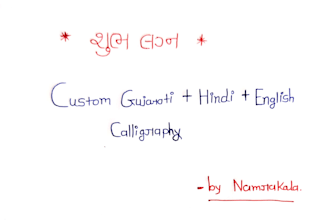 * શુભ લગ્ન *
Custom Gujarati + Hindi + English
Calligraphy
- by Namrakala.